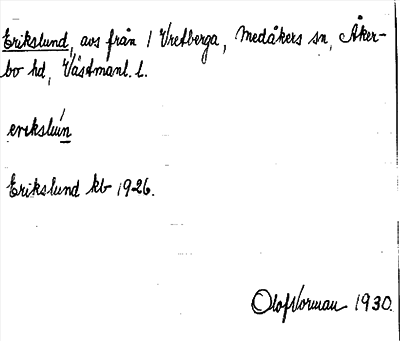 Erikslund, avs från 1 Vretberga, Medåkers sn, Åker-
bo hd, Västmanl. l.
erikslún
Erikslund kb 1926.
Olof Norman 1930.